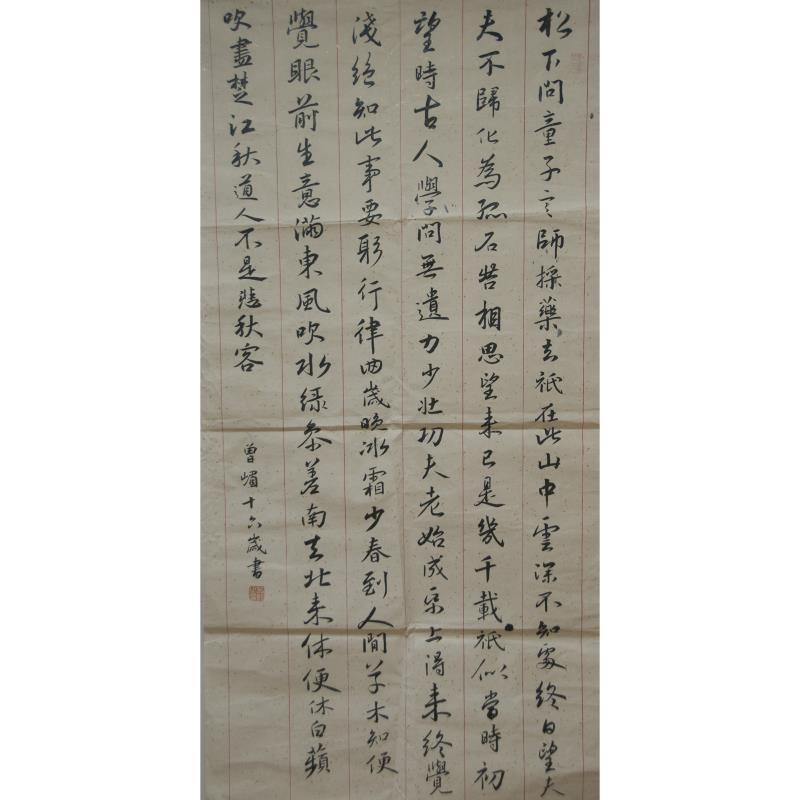 松下問童子言師採藥去祇在此山中雲深不知處終日望夫
夫不歸化為孤石苦相思望来已是幾千載祇似當時初
望時古人學問無遺力少壮功夫老始成帋上得来終覺
淺絶知此事要躬行律囬歲晚冰霜少春到人間草木知便
覺眼前生意滿東風吹水緑参差南去北来休便休白蘋
吹盡楚江秋道人不是悲秋客
曾嵋十六歲書